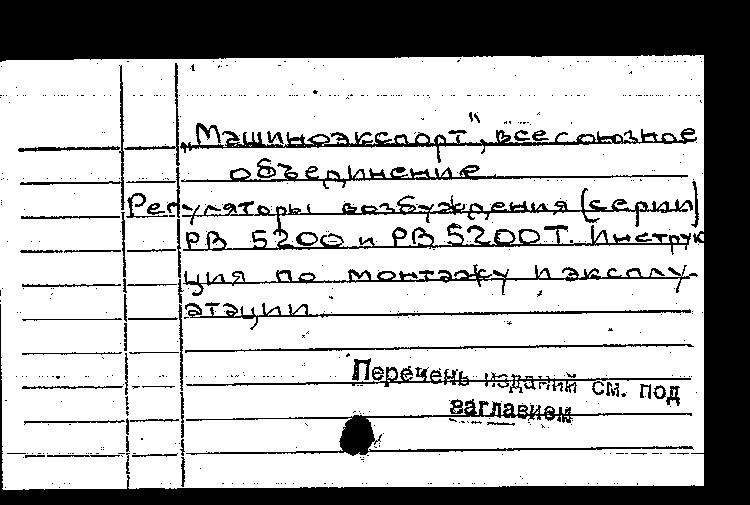 „Машиноэкспорт", всесоюзное
объединение
Регуляторы возбуждения (серии)
РВ 5200 и РВ 5200Т. Инструк
ция по монтажу и эксплу-
атации.
Перечень изданий см. под
заглавием